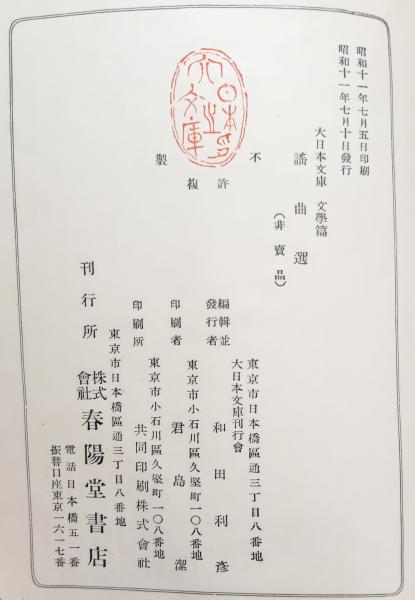 昭和十一年七月五日印刷
昭和十一年七月十日發行
大日本文庫 文學篇
謠曲選
(非賣品)
不許複製
大日本文庫之印
東京市日本橋區通三丁目八番地
大日本文庫刊行會
編輯並發行者 和田利彥
東京市小石川區久堅町一〇八番地
印刷者 君島潔
東京市小石川區久堅町一〇八番地
印刷所 共同印刷株式會社
東京市日本橋區通三丁目八番地
刊行所 株式會社 春陽堂書店
電話日本橋五一番
振替口座東京一六一七番